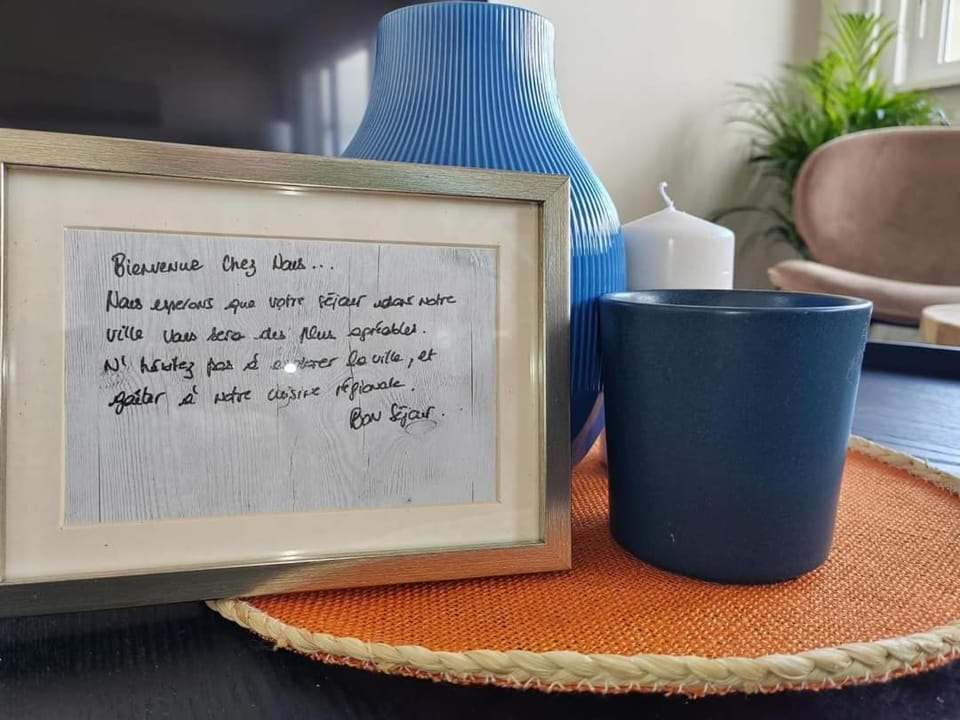 Bienvenue chez Nous...
Nous esperons que votre séjour dans notre
ville vous sera des plus agréables.
N'hésitez pas à explorer la ville, et
goûter à notre cuisine régionale.
Bon Séjour.